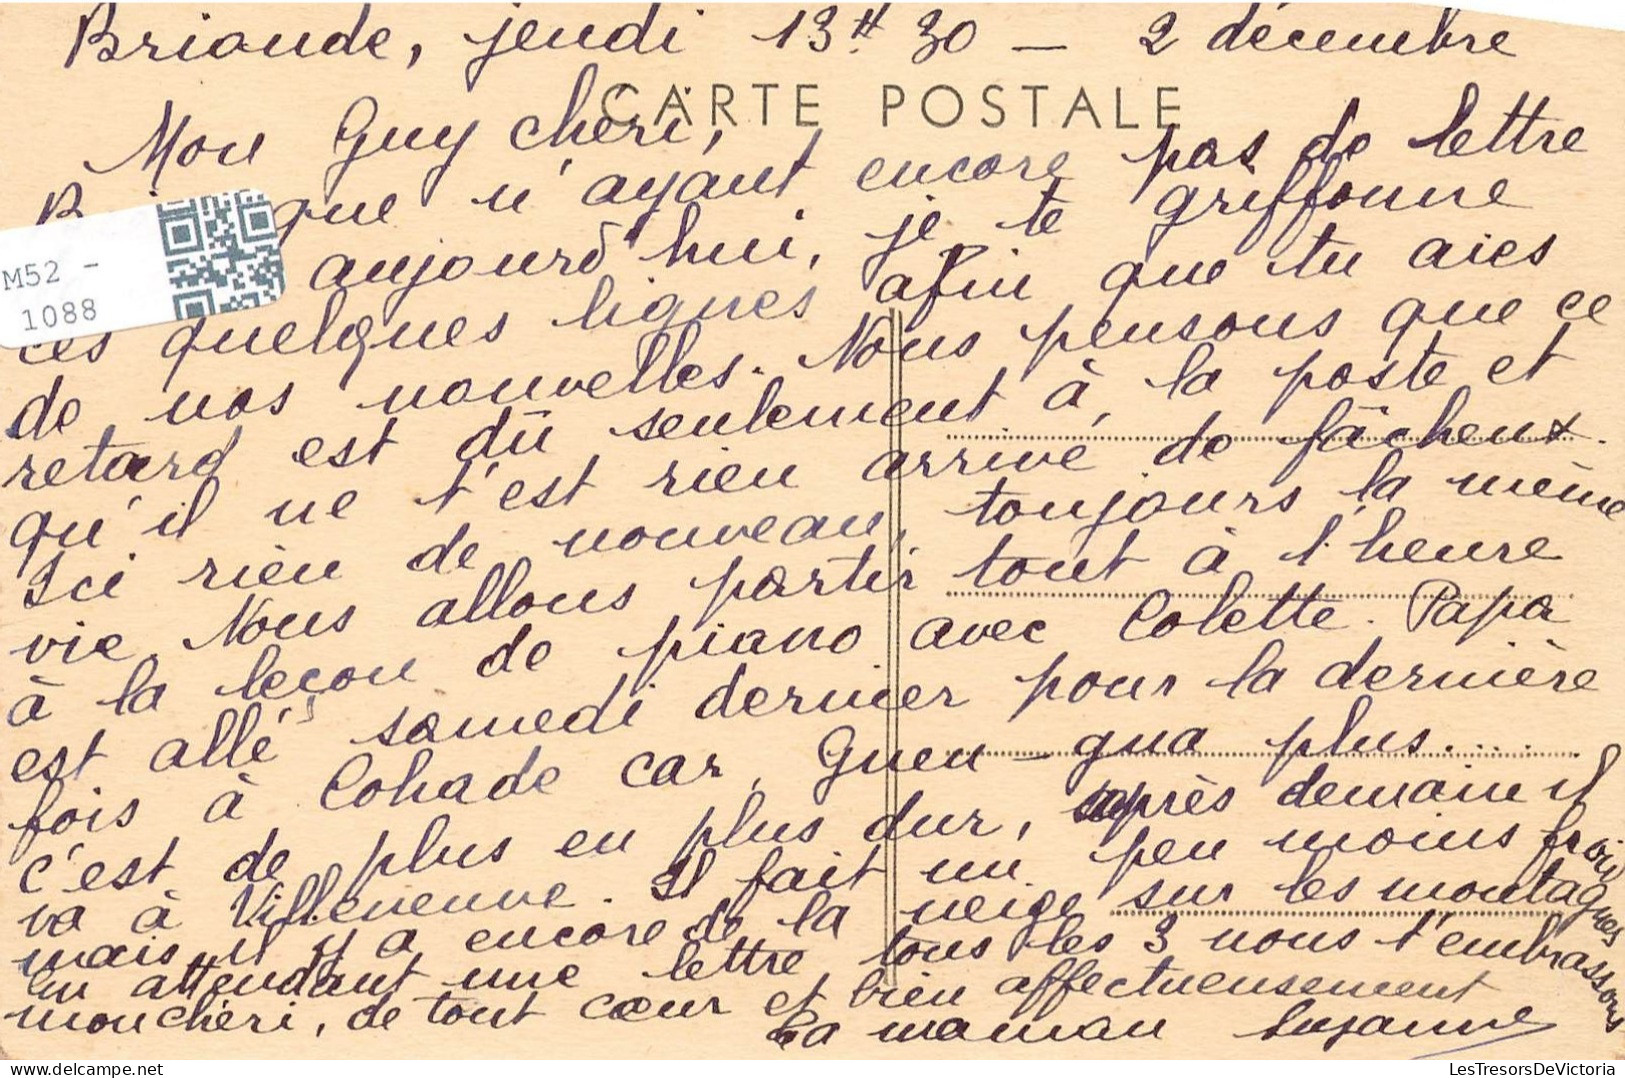 Brioude, jeudi 13H30 — 2 décembre
CARTE POSTALE
Mon Guy chéri,
que n'ayant encore pas de lettre
aujourd'hui, je te griffonne
ces quelques lignes afin que tu aies
de nos nouvelles. Nous pensons que ce
retard est dû seulement à la poste et
qu'il ne t'est rien arrivé de fâcheux.
Ici rien de nouveau, toujours la même
vie. Nous allons partir tout à l'heure
à la leçon de piano avec Colette. Papa
est allé samedi dernier pour la dernière
fois à Cohade car, Gueu-gna plus....
c'est de plus en plus dur, après demain il
va à Villeneuve. Il fait un peu moins froid
mais il y a encore de la neige sur les montagnes
En attendant une lettre, tous les 3 nous t'embrassons
mon chéri, de tout cœur et bien affectueusement
Ta maman Suzanne
M52 -
1088
LesTresorsDeVictoria